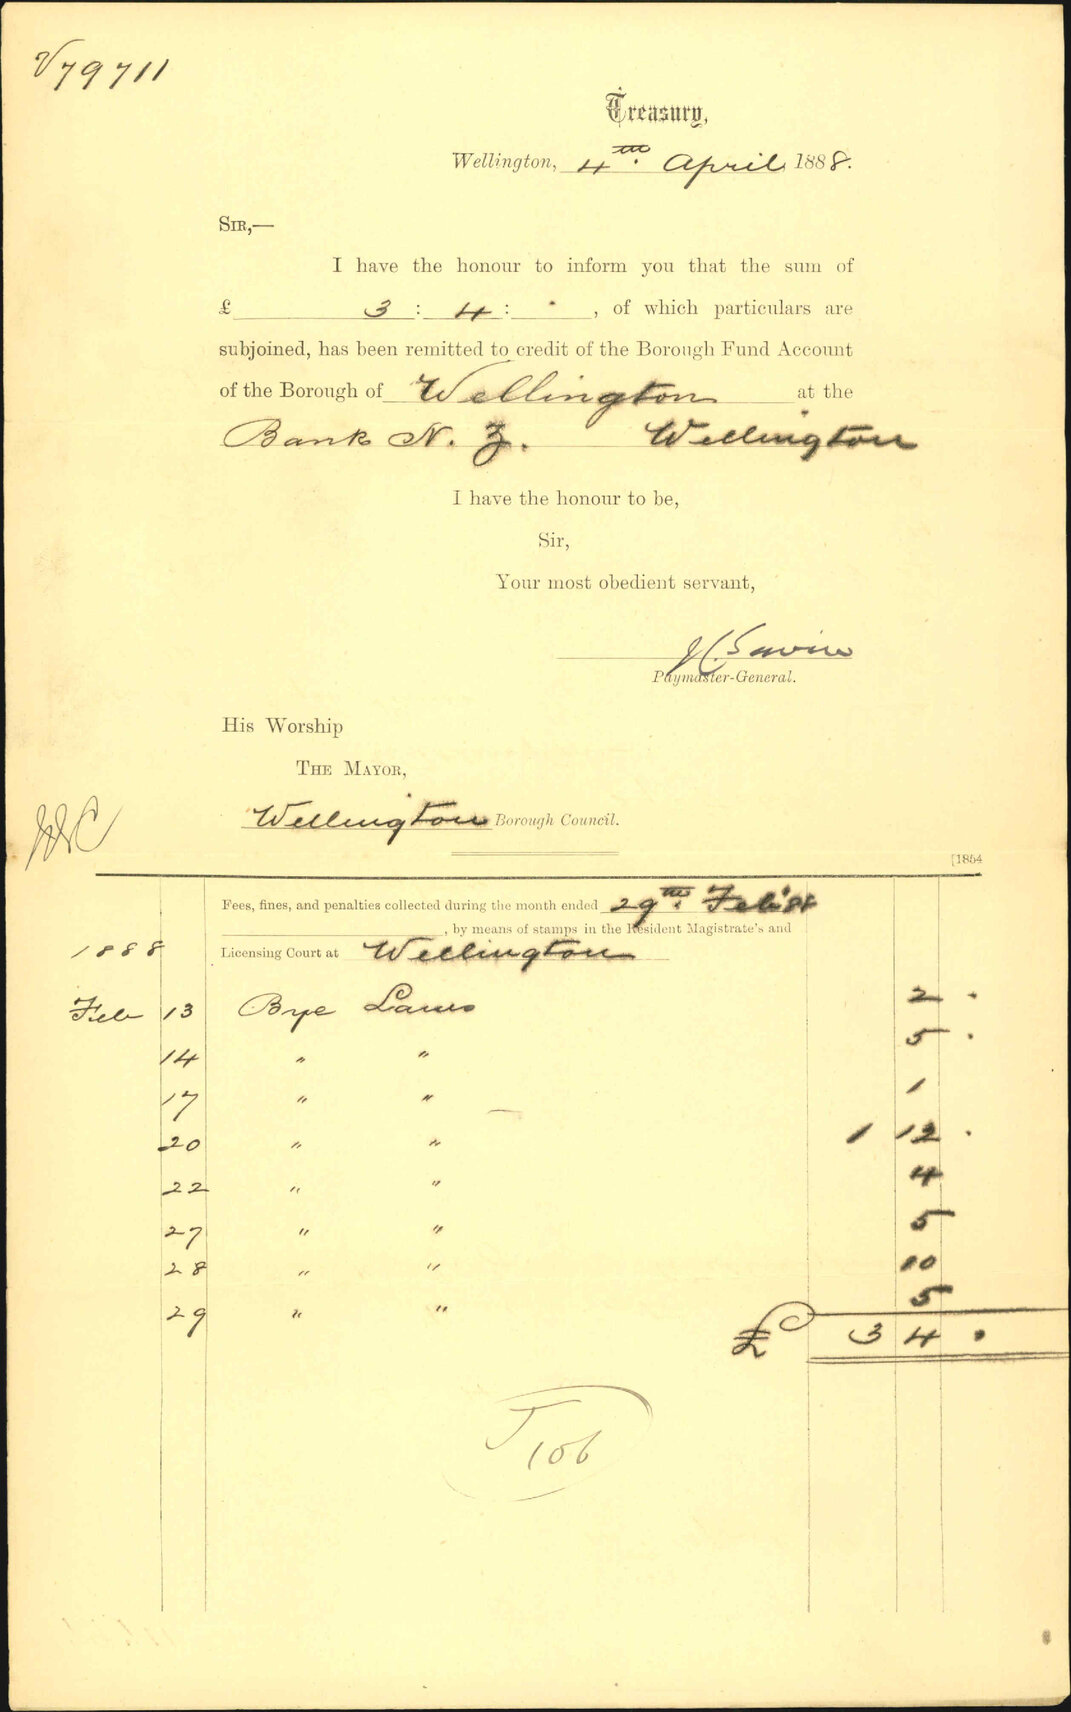 V79711
Treasury,
Wellington, 4th. April 1888.
SIR,—
I have the honour to inform you that the sum of
£ 3 : 4 : · , of which particulars are
subjoined, has been remitted to credit of the Borough Fund Account
of the Borough of Wellington at the
Bank N. Z. Wellington
I have the honour to be,
Sir,
Your most obedient servant,
Paymaster-General.
His Worship
THE MAYOR,
Wellington Borough Council.
[1854
Fees, fines, and penalties collected during the month ended 29th. Feb '88
, by means of stamps in the Resident Magistrate's and
1888 Licensing Court at Wellington
Feb 13 Bye Laws 2 ·
14 " " 5 ·
17 " " 1
20 " " 1 12 ·
22 " " 4
27 " " 5
28 " " 10
29 " " 5
£ 3 4 ·
T 106